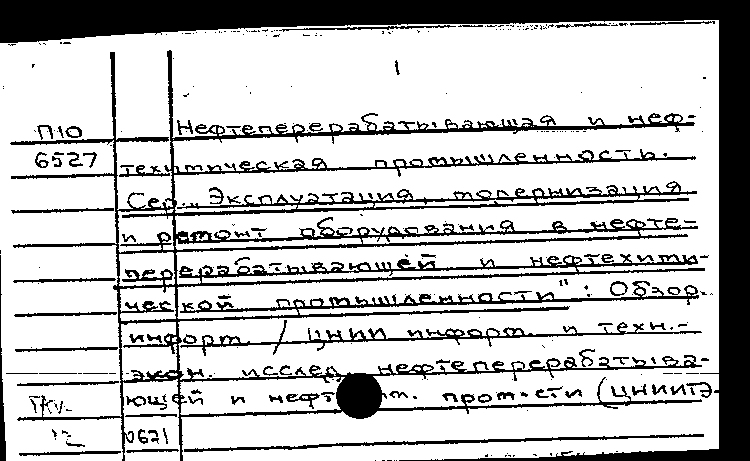 1
П10 Нефтеперерабатывающая и неф-
6527 техимическая промышленность.
Сер. „Эксплуатация, модернизация
и ремонт оборудования в нефте-
перерабатывающей и нефтехими-
ческой промышленности": Обзор.
информ. / ЦНИИ информ. и техн.-
экон. исслед. нефтеперерабатыва-
ющей и нефт м. пром-сти (ЦНИИТЭ-
0621